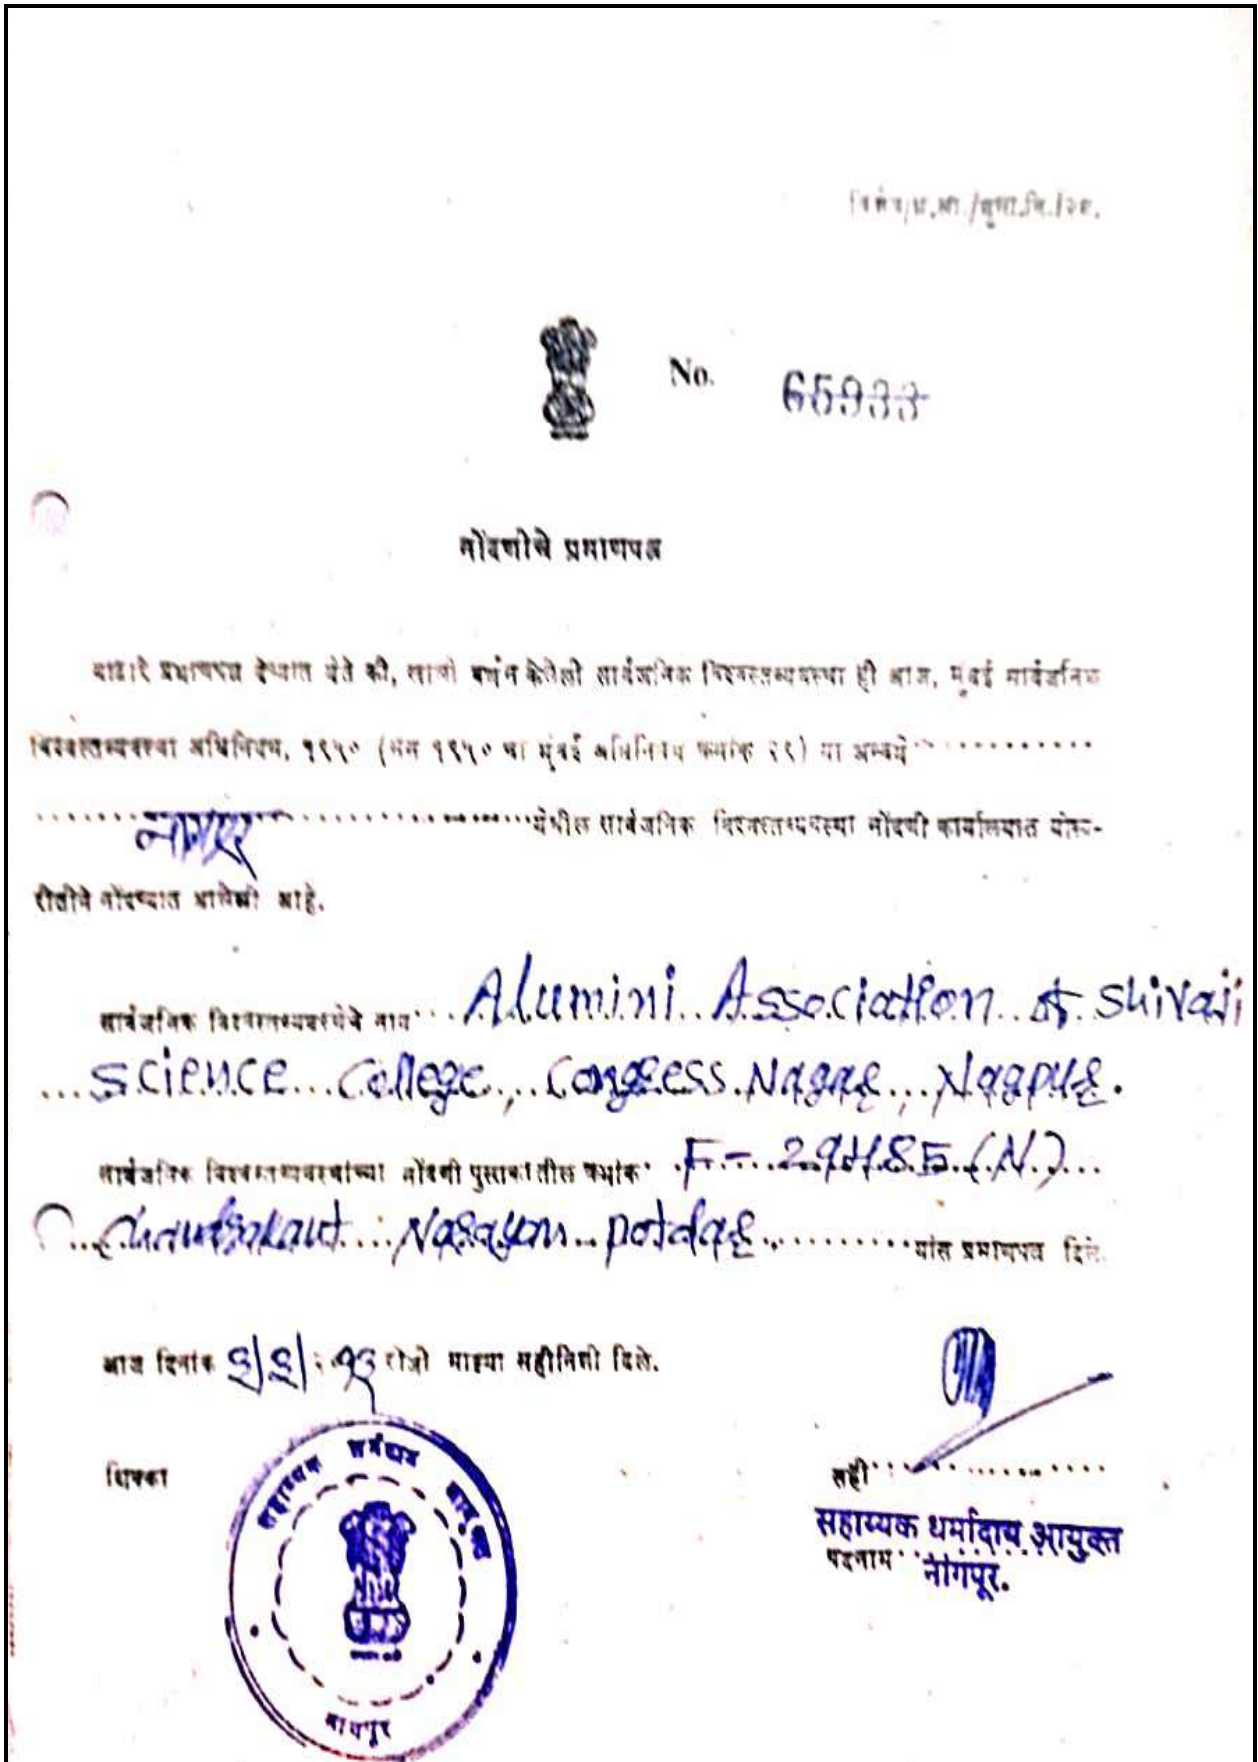 No. 65933
नोंदणीचे प्रमाणपत्र
याद्वारे प्रमाणपत्र देण्यात येते की, खाली वर्णन केलेली सार्वजनिक विश्वस्तव्यवस्था ही आज, मुंबई सार्वजनिक
विश्वस्तव्यवस्था अधिनियम, १९५० (सन १९५० चा मुंबई अधिनियम क्रमांक २९) या अन्वये
नागपूर येथील सार्वजनिक विश्वस्तव्यवस्था नोंदणी कार्यालयात योग्य-
रीतीने नोंदण्यात आलेली आहे.
सार्वजनिक विश्वस्तव्यवस्थेचे नाव Alumini Association of Shivaji
Science College, Congress Nagar, Nagpur.
सार्वजनिक विश्वस्तव्यवस्थांच्या नोंदणी पुस्तकातील क्रमांक F- 29485 (N)
Chandrakant Narayan Potdar यांस प्रमाणपत्र दिले.
आज दिनांक रोजी माझ्या सहीनिशी दिले.
शिक्का
सहाय्यक धर्मादाय आयुक्त
नागपूर
सही
सहाय्यक धर्मादाय आयुक्त
पदनाम
नागपूर.